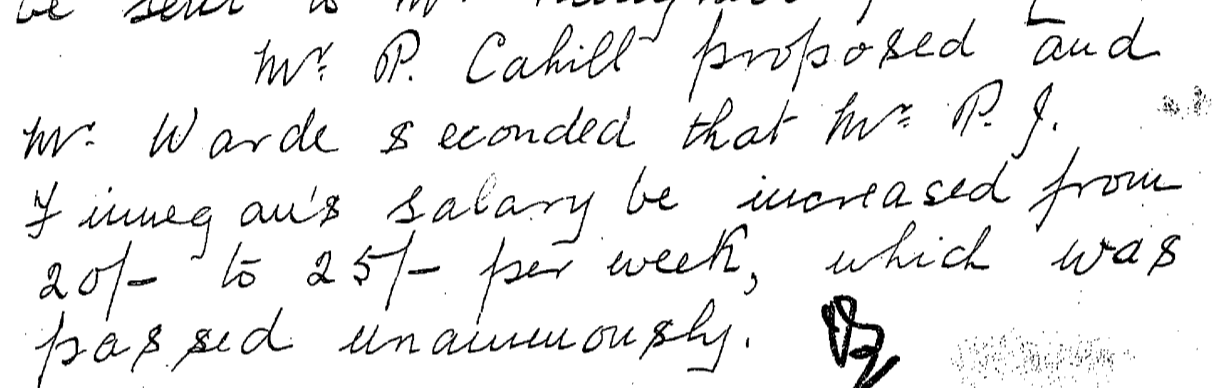 be sent to Mr.
Mr. P. Cahill proposed and
Mr. Warde seconded that Mr. P. J.
Finnegan's salary be increased from
20/- to 25/- per week, which was
passed unanimously.